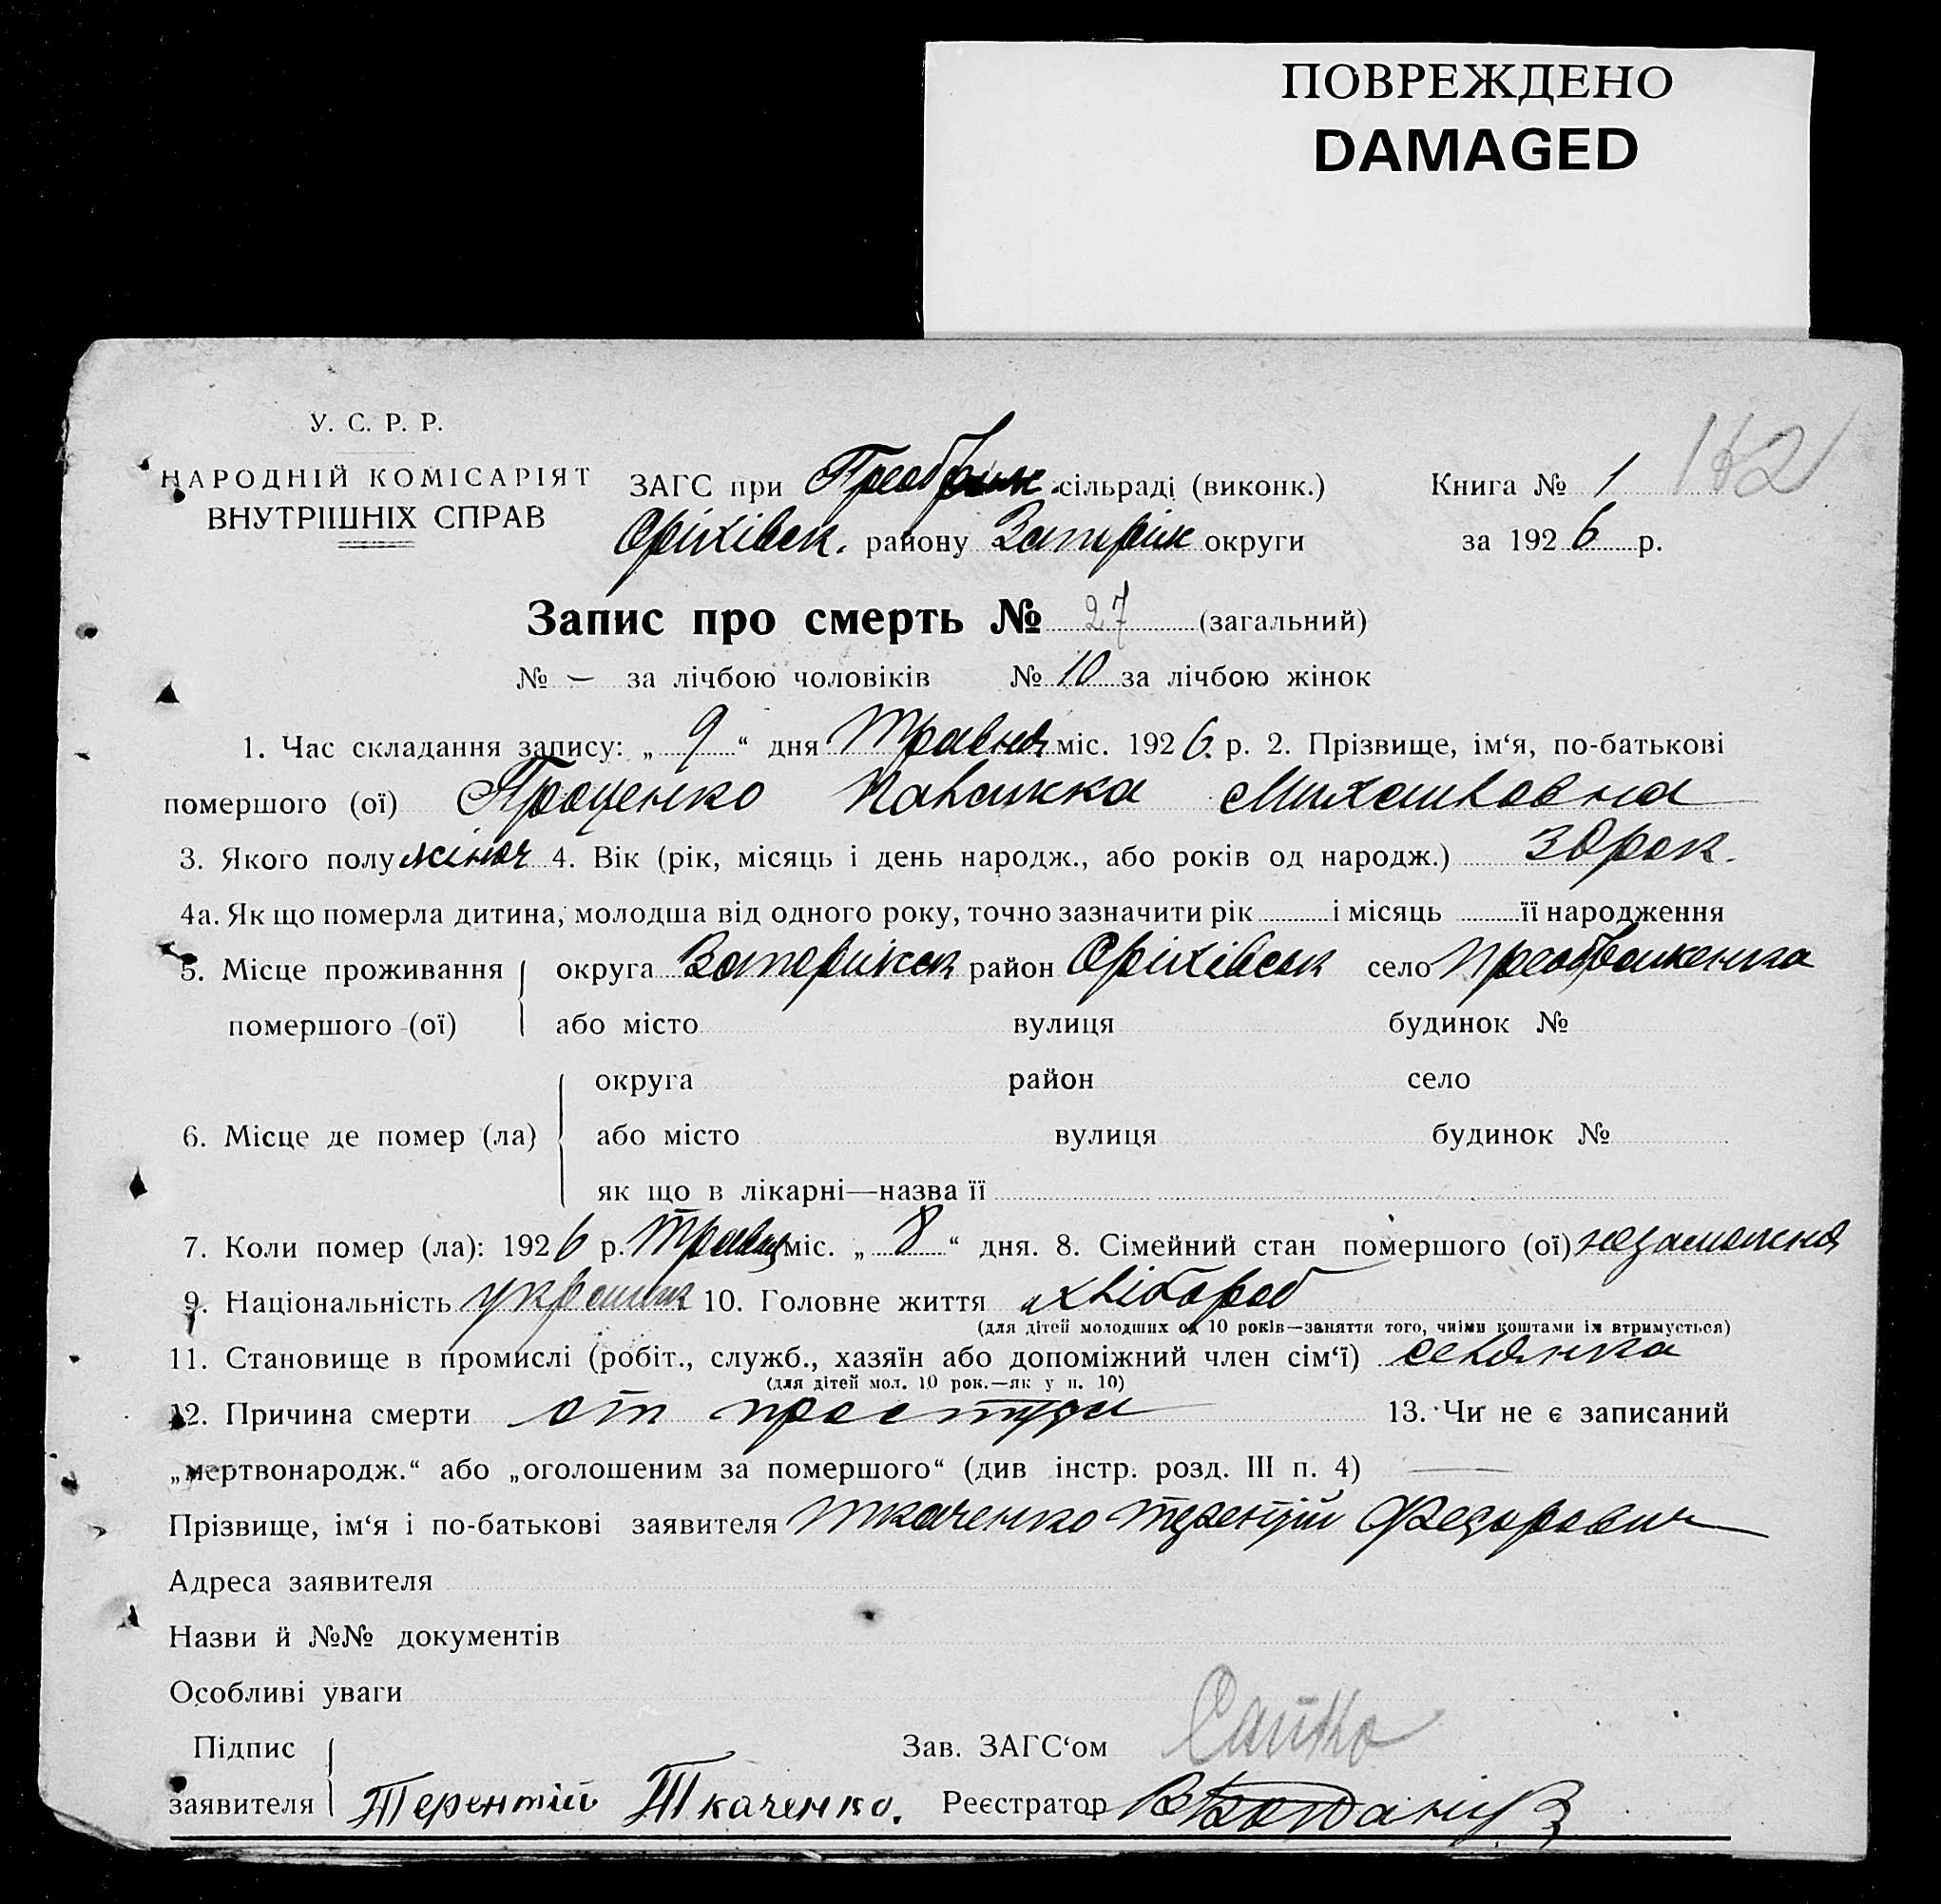 ПОВРЕЖДЕНО
DAMAGED
У. С. Р. Р.
НАРОДНІЙ КОМІСАРІЯТ
ВНУТРІШНІХ СПРАВ
ЗАГС при сільраді (виконк.)
Оріхівск. району округи
Книга № 1
162
за 1926 р.
Запис про смерть № 27 (загальний)
№ – за лічбою чоловіків № 10 за лічбою жінок
1. Час складання запису: „ 9 “ дня Травня міс. 1926 р. 2. Прізвище, ім‘я, по-батькові
помершого (ої) Проценко Михайловна
3. Якого полу жіноч 4. Вік (рік, місяць і день народж., або років од народж.) 30 рок.
4а. Як що померла дитина, молодша від одного року, точно зазначити рік і місяць її народження
5. Місце проживання округа район Оріхівськ село Преображенка
помершого (ої) або місто вулиця будинок №
округа район село
6. Місце де помер (ла) або місто вулиця будинок №
як що в лікарні—назва її
7. Коли помер (ла): 1926 р. Травня міс. „ 8 “ дня. 8. Сімейний стан помершого (ої) незаможня
9. Національність 10. Головне життя хлібороб
(для дітей молодших од 10 років—заняття того, чиїми коштами їх втримується)
11. Становище в промислі (робіт., служб., хазяїн або допоміжний член сім‘ї) селянка
(для дітей мол. 10 рок.—як у п. 10)
12. Причина смерти от простуди 13. Чи не є записаний
„мертвонародж.“ або „оголошеним за помершого“ (див інстр. розд. III п. 4) —
Прізвище, ім‘я і по-батькові заявителя Ткаченко Терентій Федорович
Адреса заявителя
Назви й №№ документів
Особливі уваги
Підпис
заявителя Терентій Ткаченко.
Зав. ЗАГС‘ом
Реєстратор